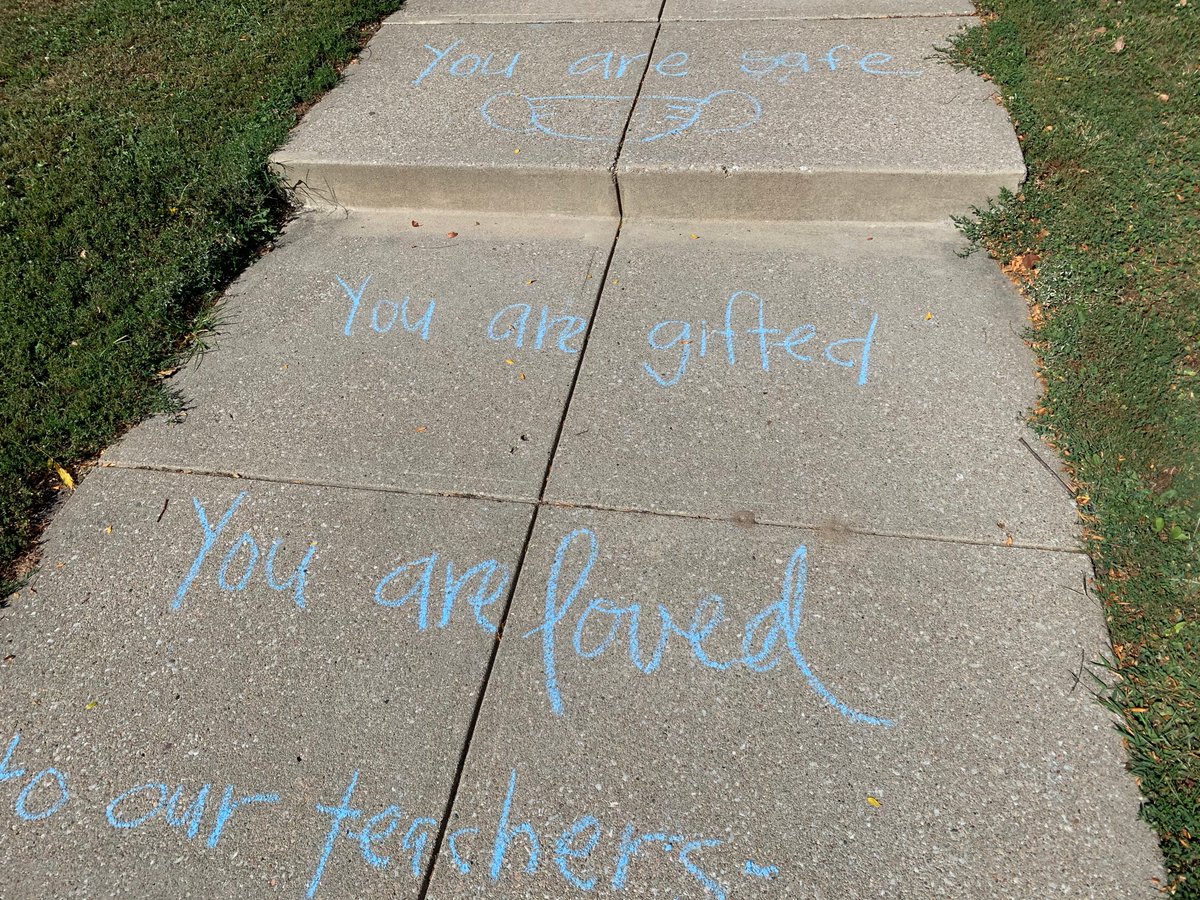 You are safe
You are gifted
You are loved
to our teachers-